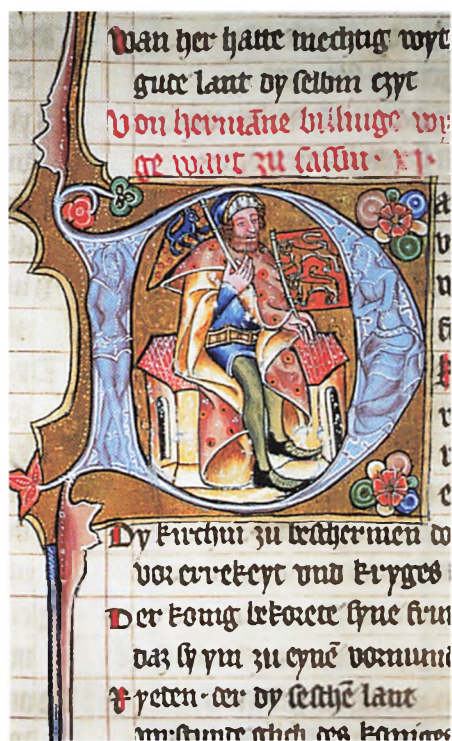 wan her hatte mechtig wyt
gute lant dy selbin czyt
Von hermāne billinge wy
ge wart zu sassin · xi·
Dy kirchin zu beschermen do
vor errekeyt vnd kryges
Der konig bekorete syne frun
daz sy ym zu eynē vormund
ryeten · der dy sesschē lant
glich des koniges